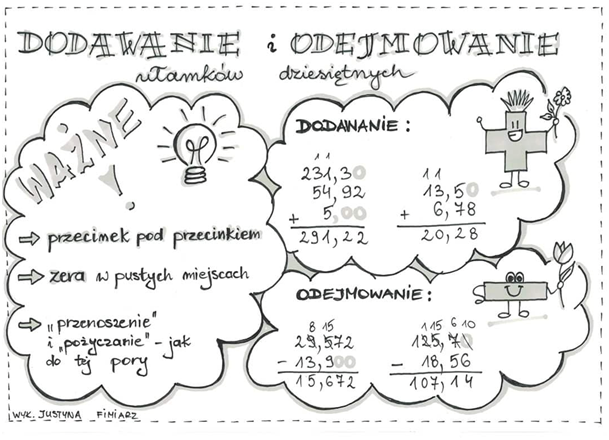 DODAWANIE i ODEJMOWANIE
ułamków dziesiętnych
WAŻNE!
⇨ przecinek pod przecinkiem
⇨ zera w pustych miejscach
⇨ „przenoszenie"
i „pożyczanie" - jak
do tej pory
DODAWANIE:
1 1
231,30
54,92
+ 5,00
291,22
1 1
13,50
+ 6,78
20,28
ODEJMOWANIE:
8 15
29,572
- 13,900
15,672
1 15 6 10
125,70
- 18,56
107,14
WYK. JUSTYNA FIMIARZ